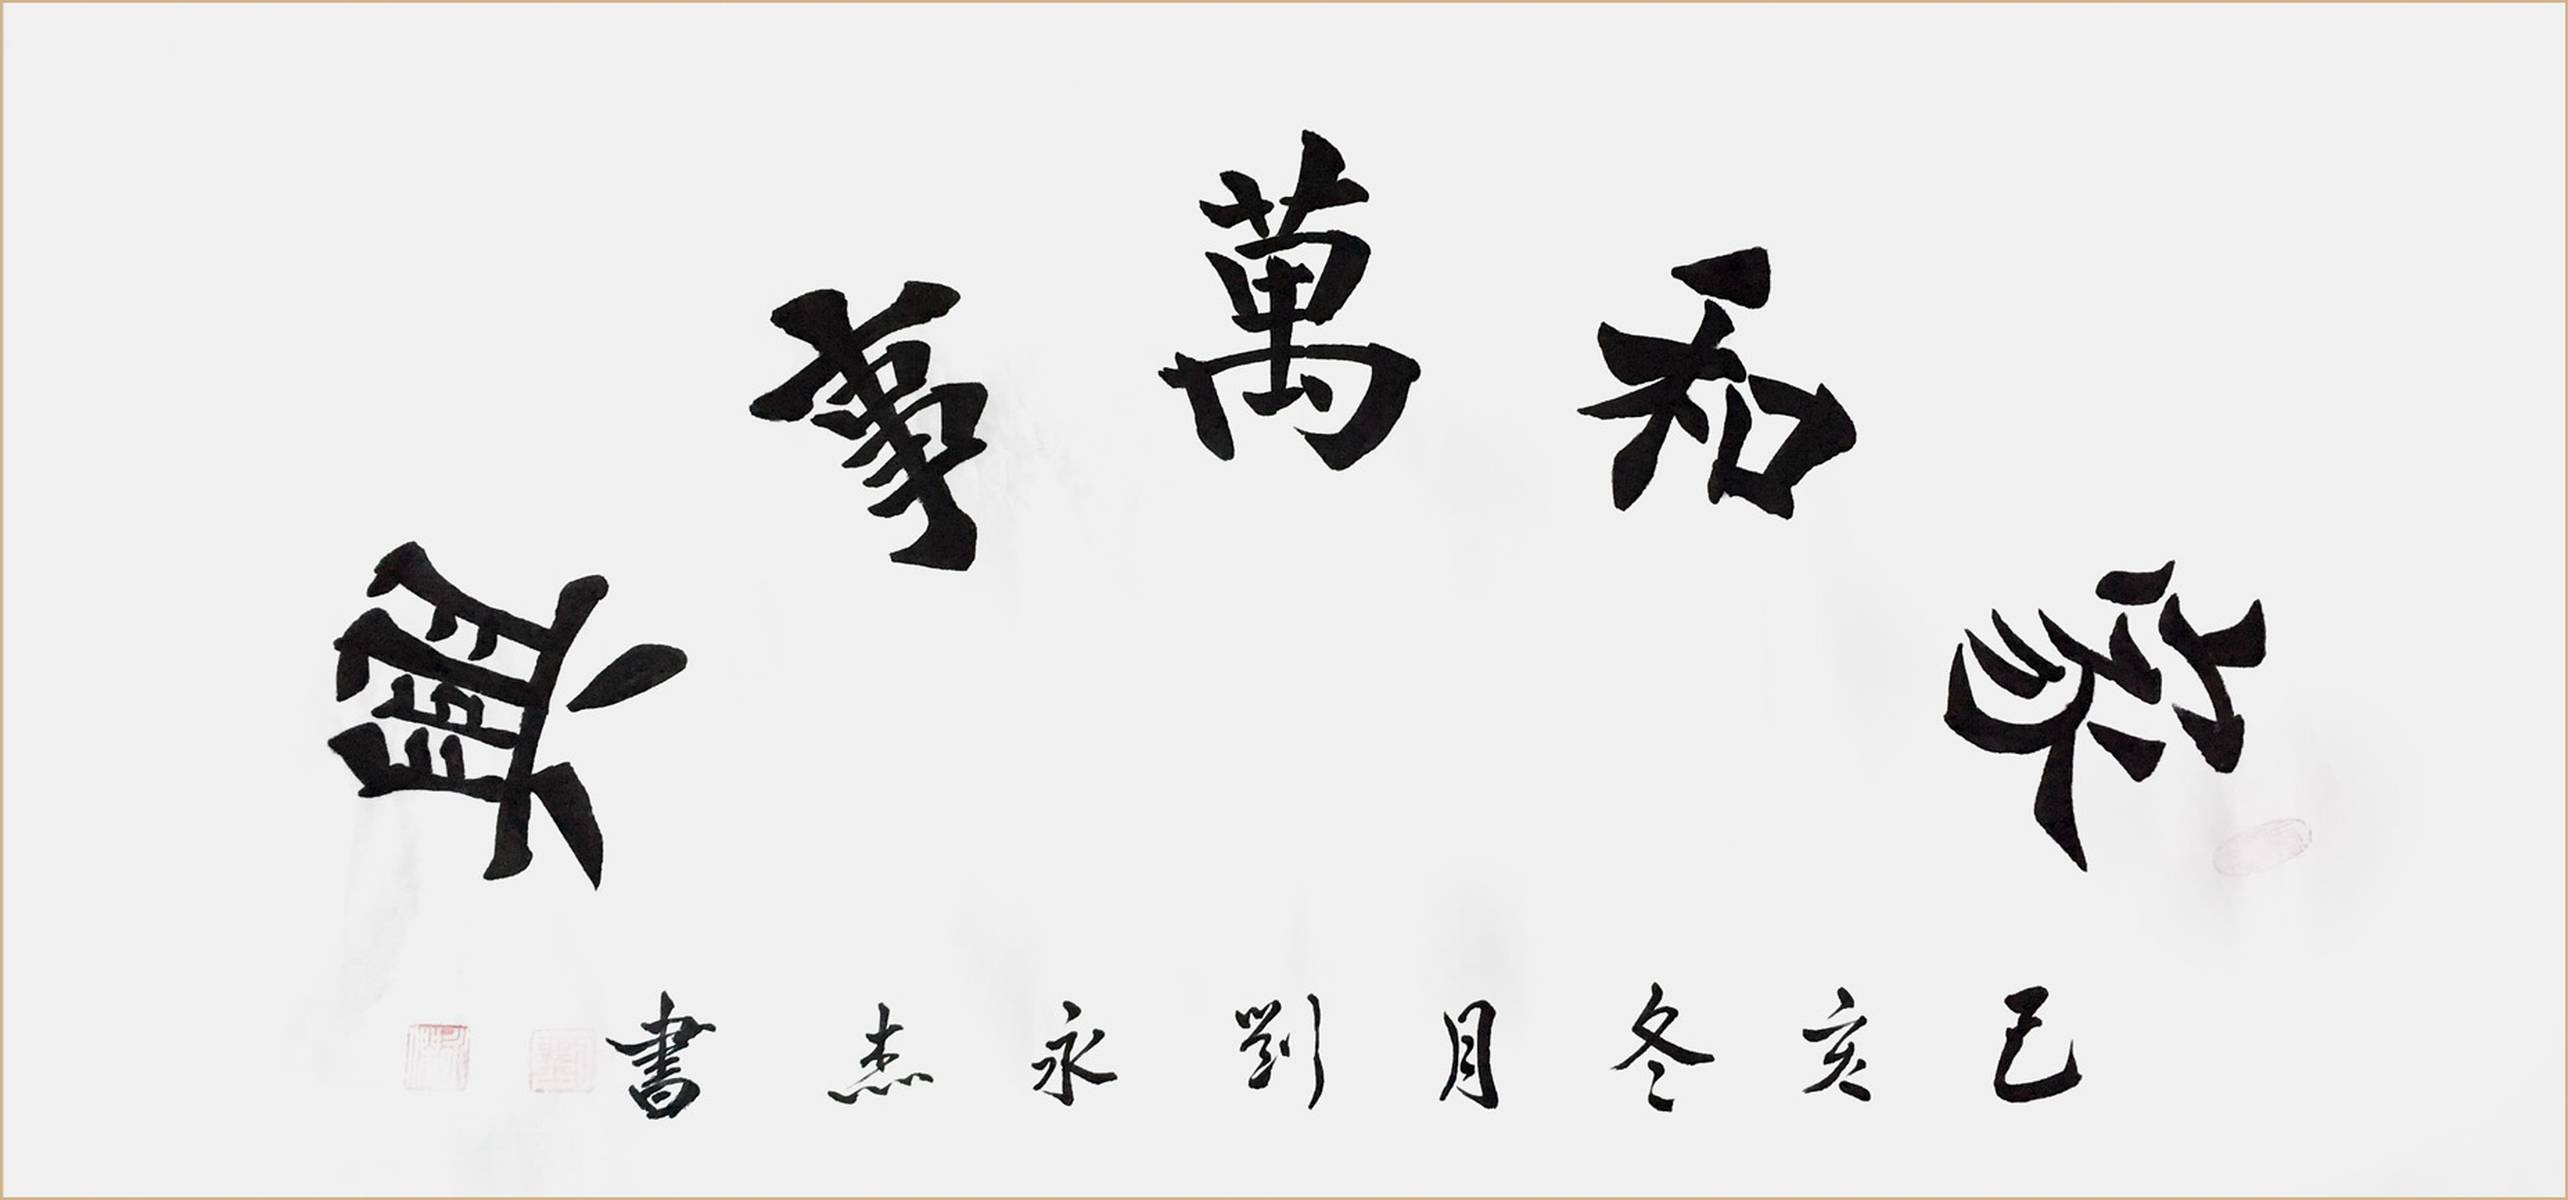 家和萬事興
己亥冬月劉永杰書